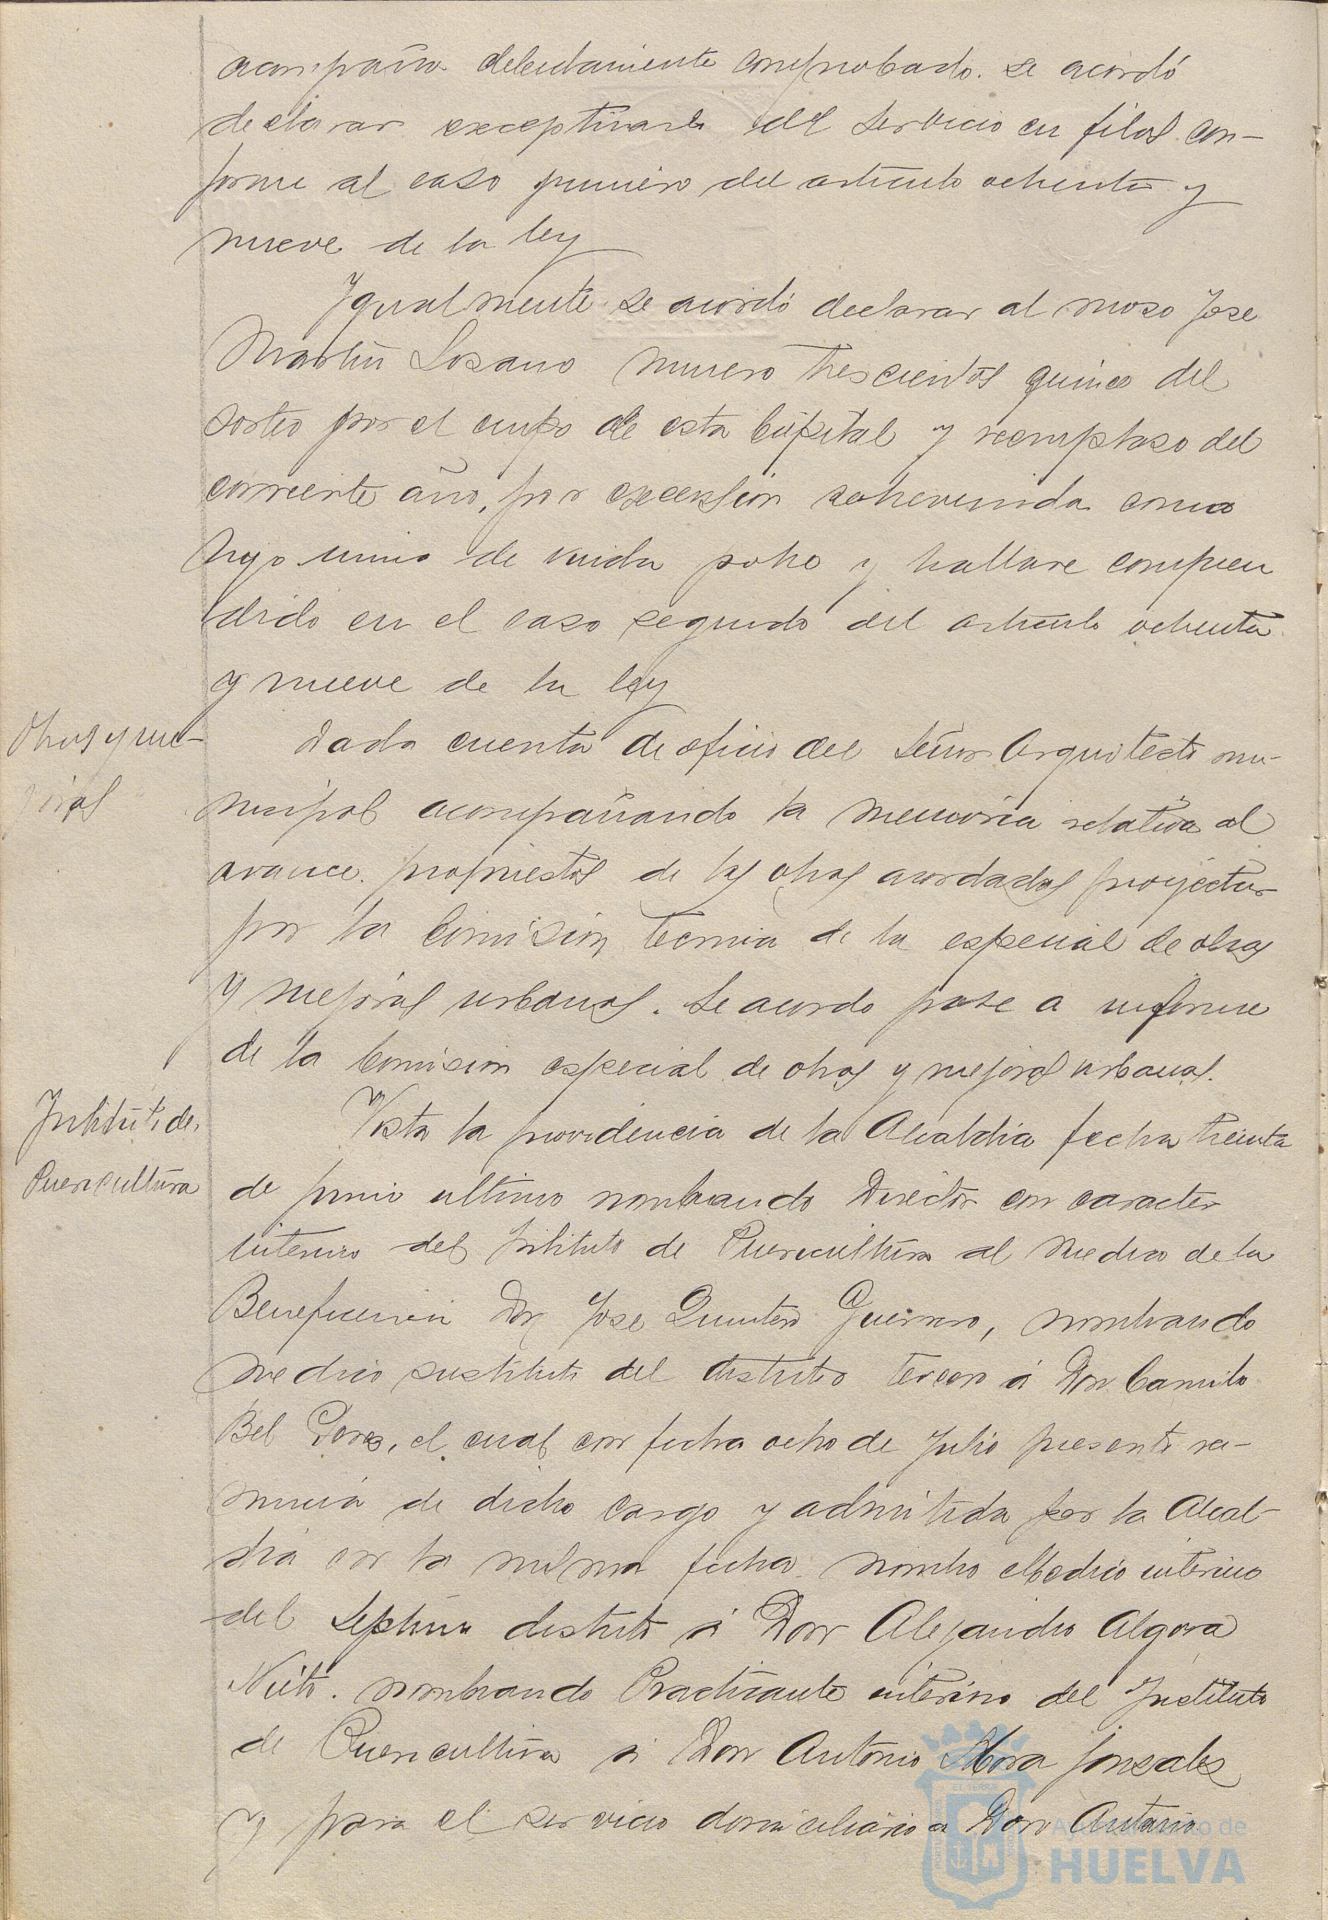 acompaña debidamente comprobado. se acordó
declarar exceptuarle del servicio en filas con-
forme al caso primero del articulo ochenta y
nueve de la ley
Igualmente se acordó declarar al moso Jose
Martin Losano numero trescientos quince del
sorteo por el cupo de esta Capital y reemplaso del
corriente año, por excepsion sobrevenida como
hijo unico de viuda pobre y hallarse compren
dido en el caso segundo del articulo ochenta
y nueve de la ley
Obras y me-
joras
Dada cuenta de oficio del Señor Arquitecto mu-
nicipal acompañando la memoria relativa al
avance propuestas de las obras acordadas proyectar
por la Comisión tecnica de la especial de obras
y mejoras urbanas. Se acordo pase a informe
de la Comision especial de obras y mejoras urbanas.
Instituto de
Puericultura
Vista la providencia de la Alcaldia fecha treinta
de junio ultimo nombrando Director con caracter
interino del Instituto de Puericultura al Medico de la
Beneficencia Don Jose Quintero Guerrero, nombrando
medico sustituto del distrito tercero á Don Camilo
Bel el cual con fecha ocho de Julio presento re-
nuncia de dicho cargo y admitida por la Alcal-
dia con la misma fecha. nombro Medico interino
del septimo distrito á Don Alejandro Algora
Nieto. nombrando Practicante interino del Instituto
de Puericultura á Don Antonio Mora Gonsales
y para el servicio domiciliario a Don Antonio
Ayuntamiento de
HUELVA